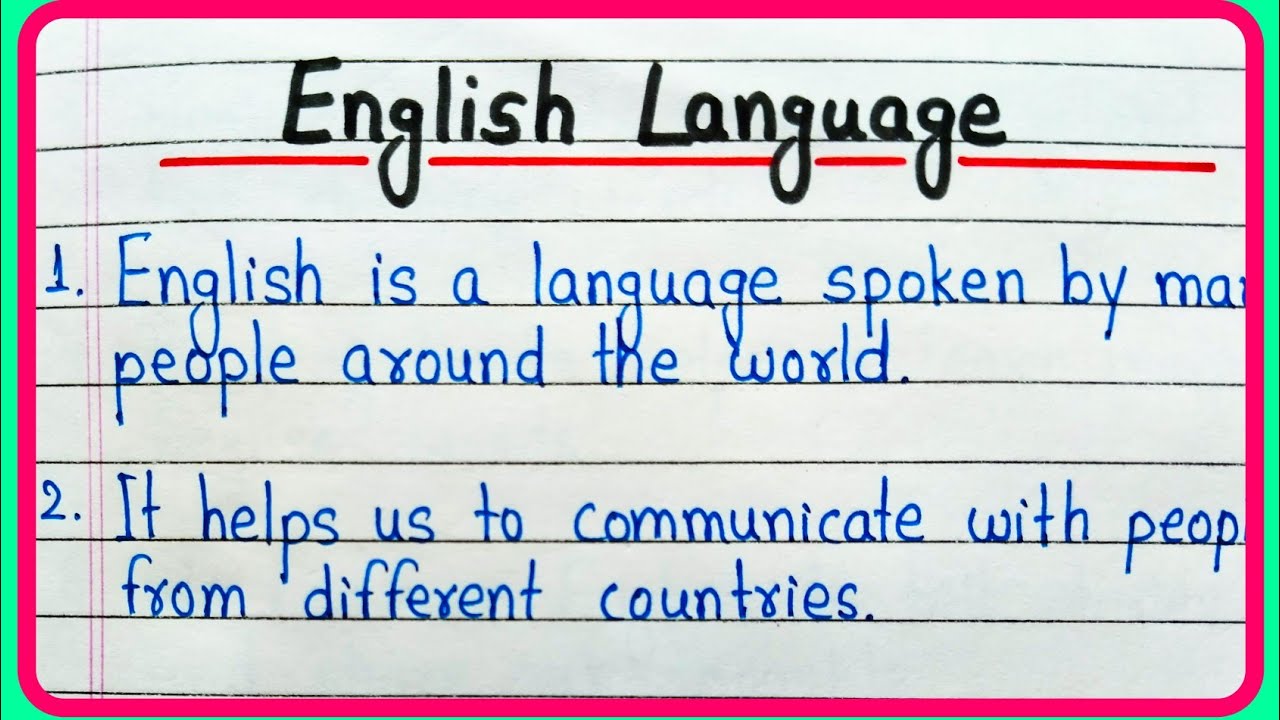 English Language
1. English is a language spoken by ma
people around the world.
2. It helps us to communicate with peop
from different countries.